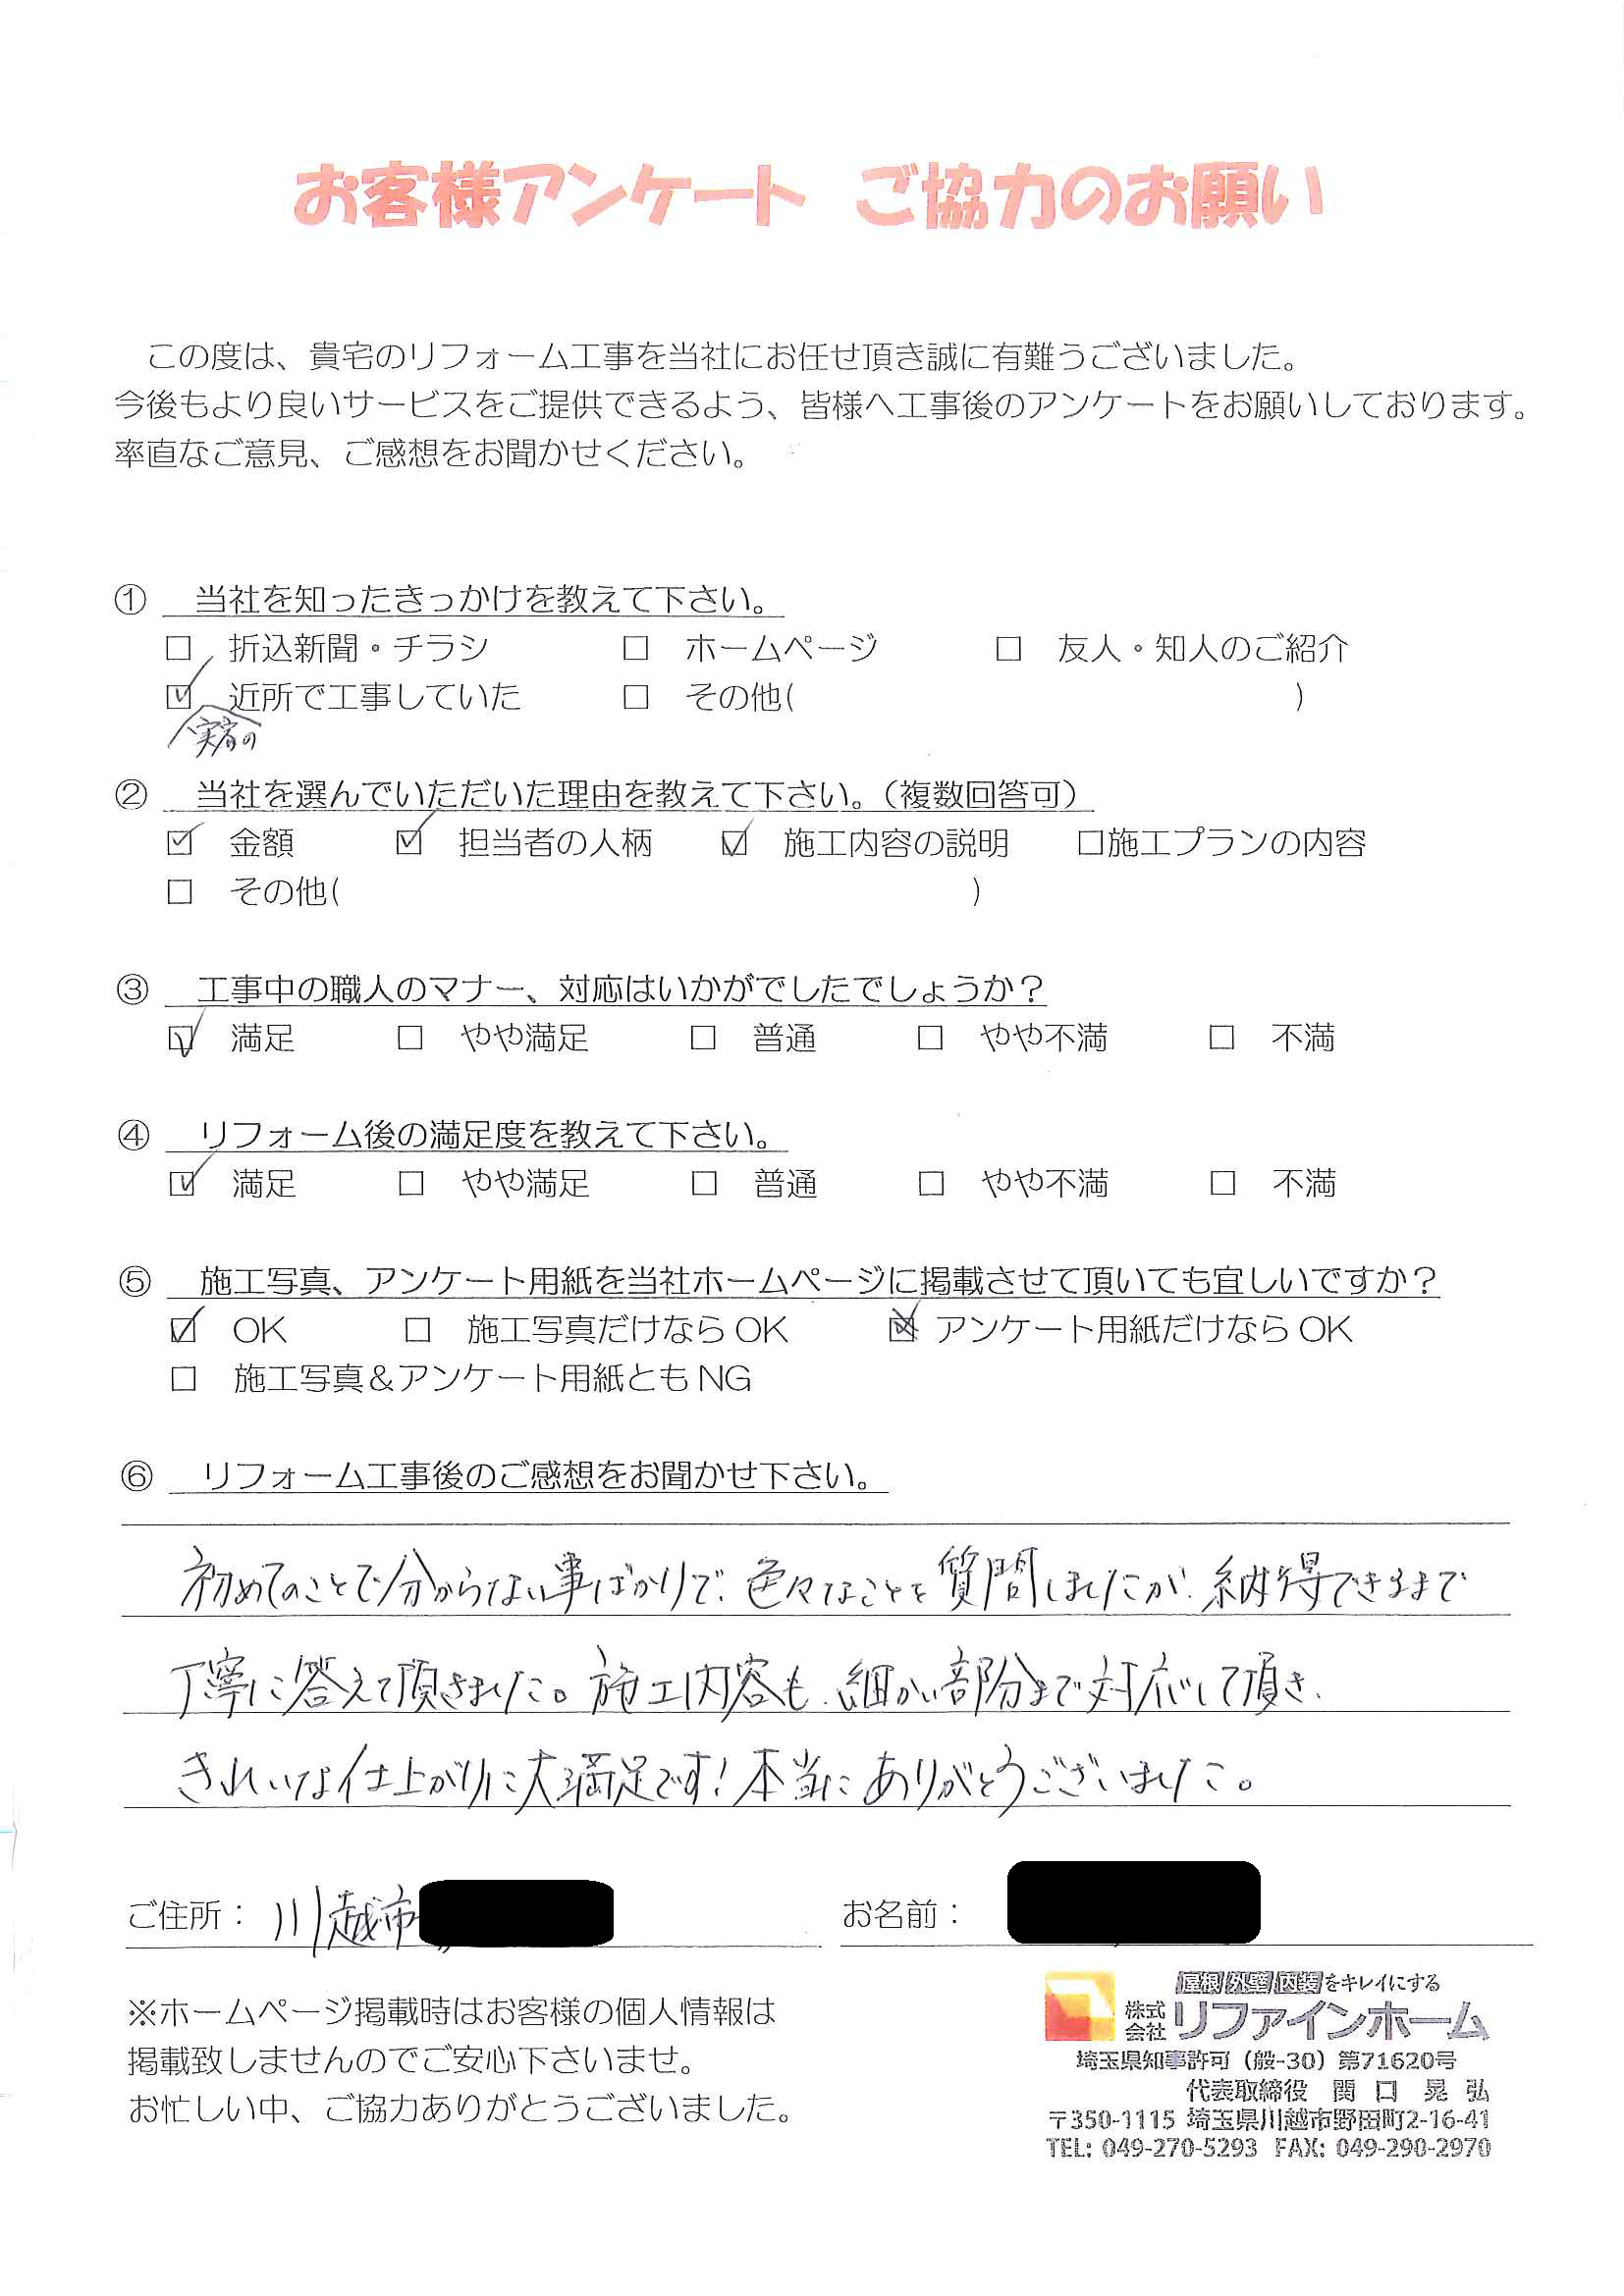 お客様アンケート ご協力のお願い
この度は、貴宅のリフォーム工事を当社にお任せ頂き誠に有難うございました。
今後もより良いサービスをご提供できるよう、皆様へ工事後のアンケートをお願いしております。
率直なご意見、ご感想をお聞かせください。
① 当社を知ったきっかけを教えて下さい。
□ 折込新聞・チラシ □ ホームページ □ 友人・知人のご紹介
☑ 近所で工事していた □ その他( )
実家の
② 当社を選んでいただいた理由を教えて下さい。（複数回答可）
☑ 金額 ☑ 担当者の人柄 ☑ 施工内容の説明 □施工プランの内容
□ その他( )
③ 工事中の職人のマナー、対応はいかがでしたでしょうか？
☑ 満足 □ やや満足 □ 普通 □ やや不満 □ 不満
④ リフォーム後の満足度を教えて下さい。
☑ 満足 □ やや満足 □ 普通 □ やや不満 □ 不満
⑤ 施工写真、アンケート用紙を当社ホームページに掲載させて頂いても宜しいですか？
☑ OK □ 施工写真だけなら OK ☒ アンケート用紙だけなら OK
□ 施工写真＆アンケート用紙とも NG
⑥ リフォーム工事後のご感想をお聞かせ下さい。
初めてのことで分からない事ばかりで、色々なことを質問しましたが、納得できるまで
丁寧に答えて頂きました。施工内容も、細かい部分まで対応して頂き、
きれいな仕上がりに大満足です！本当にありがとうございました。
ご住所： 川越市 お名前：
※ホームページ掲載時はお客様の個人情報は
掲載致しませんのでご安心下さいませ。
お忙しい中、ご協力ありがとうございました。
屋根 外壁 内装をキレイにする
株式会社 リファインホーム
埼玉県知事許可（般-30）第71620号
代表取締役 関口 晃弘
〒350-1115 埼玉県川越市野田町2-16-41
TEL: 049-270-5293 FAX: 049-290-2970